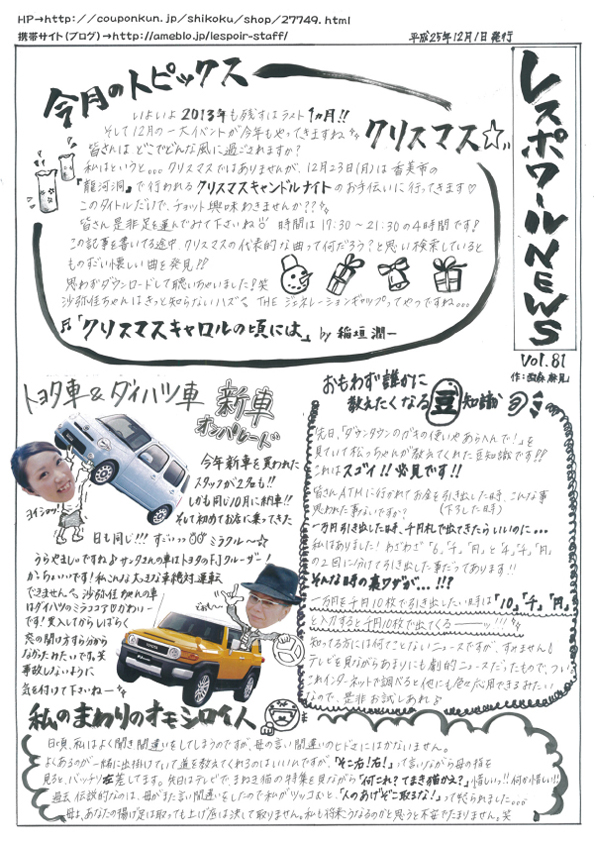 HP→http://couponkun.jp/shikoku/shop/27749.html
携帯サイト(ブログ)→http://ameblo.jp/lespoir-staff/
平成25年12月1日発行
レスポワールNEWS
Vol.81
今月のトピックス
いよいよ2013年も残すはラスト1ヵ月!!
そして12月の一大イベントが今年もやってきますね
クリスマス☆
皆さんは どこでどんな風に過ごされますか?
私はというと。。。クリスマスではありませんが、12月23日(月)は香美市の
『龍河洞』で行われるクリスマスキャンドルナイトのお手伝いに行ってきます♡
このタイトルだけで、チョット興味わきませんか??
皆さん是非足を運んでみて下さいね 時間は17:30~21:30の4時間です!
この記事を書いてる途中、クリスマスの代表的な曲って何だろう?と思い検索していると
ものすごい懐しい曲を発見!?
思わずダウンロードして聴いちゃいました!笑
沙弥佳ちゃんはきっと知らないハズ THE ジェネレーションギャップってやつですね...
♬「クリスマスキャロルの頃には」 by 稲垣潤一
トヨタ車&ダイハツ車
新車
オンパレード
今年新車を買われた
スタッフが2名も!!
しかも同じ10月に納車!!
そして初めてお店に乗ってきた
日も同じ!!! すごいっ ミラクル~☆
ヨイショッ!
うらやましいですね♪サンタさんの車はトヨタのFJクルーザー!
かっちょいいです!私こんな大きな車絶対運転
できません。沙弥佳ちゃんの車
はダイハツのミラココアでかわいー
です!買入してからしばらく
窓の開け方すら分から
なかったみたいです。笑
事故しないように
気を付けて下さいねー
おもわず誰かに
教えたくなる豆知識
先日、「ダウンタウンのガキの使いやあらへんで!」を
見ていて松っちゃんが教えてくれた豆知識です!?
これはスゴイ!!必見です!!
皆さんATMに行かれてお金を引き出した時、こんな事
思われた事ないですか? (下ろした時)
一万円引き出した時、千円札で出てきたらいいのに...
私はありました!わざわざ「6、千、円」と「4、千、円」
の2回に分けて引き出した事だってあります!!
そんな時の裏ワザが...!!?
一万円を千円10枚で引き出したい時は「10」「千」「円」
と入力すると千円10枚で出てくるーーッ!!!
知ってる方には何てことないニュースですが、すみません♪
テレビを見ながらあまりにも劇的ニュースだったもので、つい。
これインターネットで調べると他にも色々応用できるみたい
なので、是非お試しあれ♪
私のまわりのオモシロイ人
日頃、私はよく聞き間違いをしてしまうのですが、母の言い間違いのヒドさにはかないません。
よくあるのが一緒に出掛けていて道を教えてくれるのはいいんですが、「そこ右!右!」って言いながら母の指を
見ると、バッチリ左差してます。先日はテレビで、まねき猫の特集を見ながら「何これ?てまき猫かえ?」惜しいっ!!何か惜しい!!
過去伝説的なのは、母がまた言い間違いをしたので私がツッコむと、「人のあげぞこ取るな!」って怒られました...
母よ、あなたの揚げ足は取っても上げ底は決して取りません。私も将来こうなるのかと思うと不安でたまりません。笑